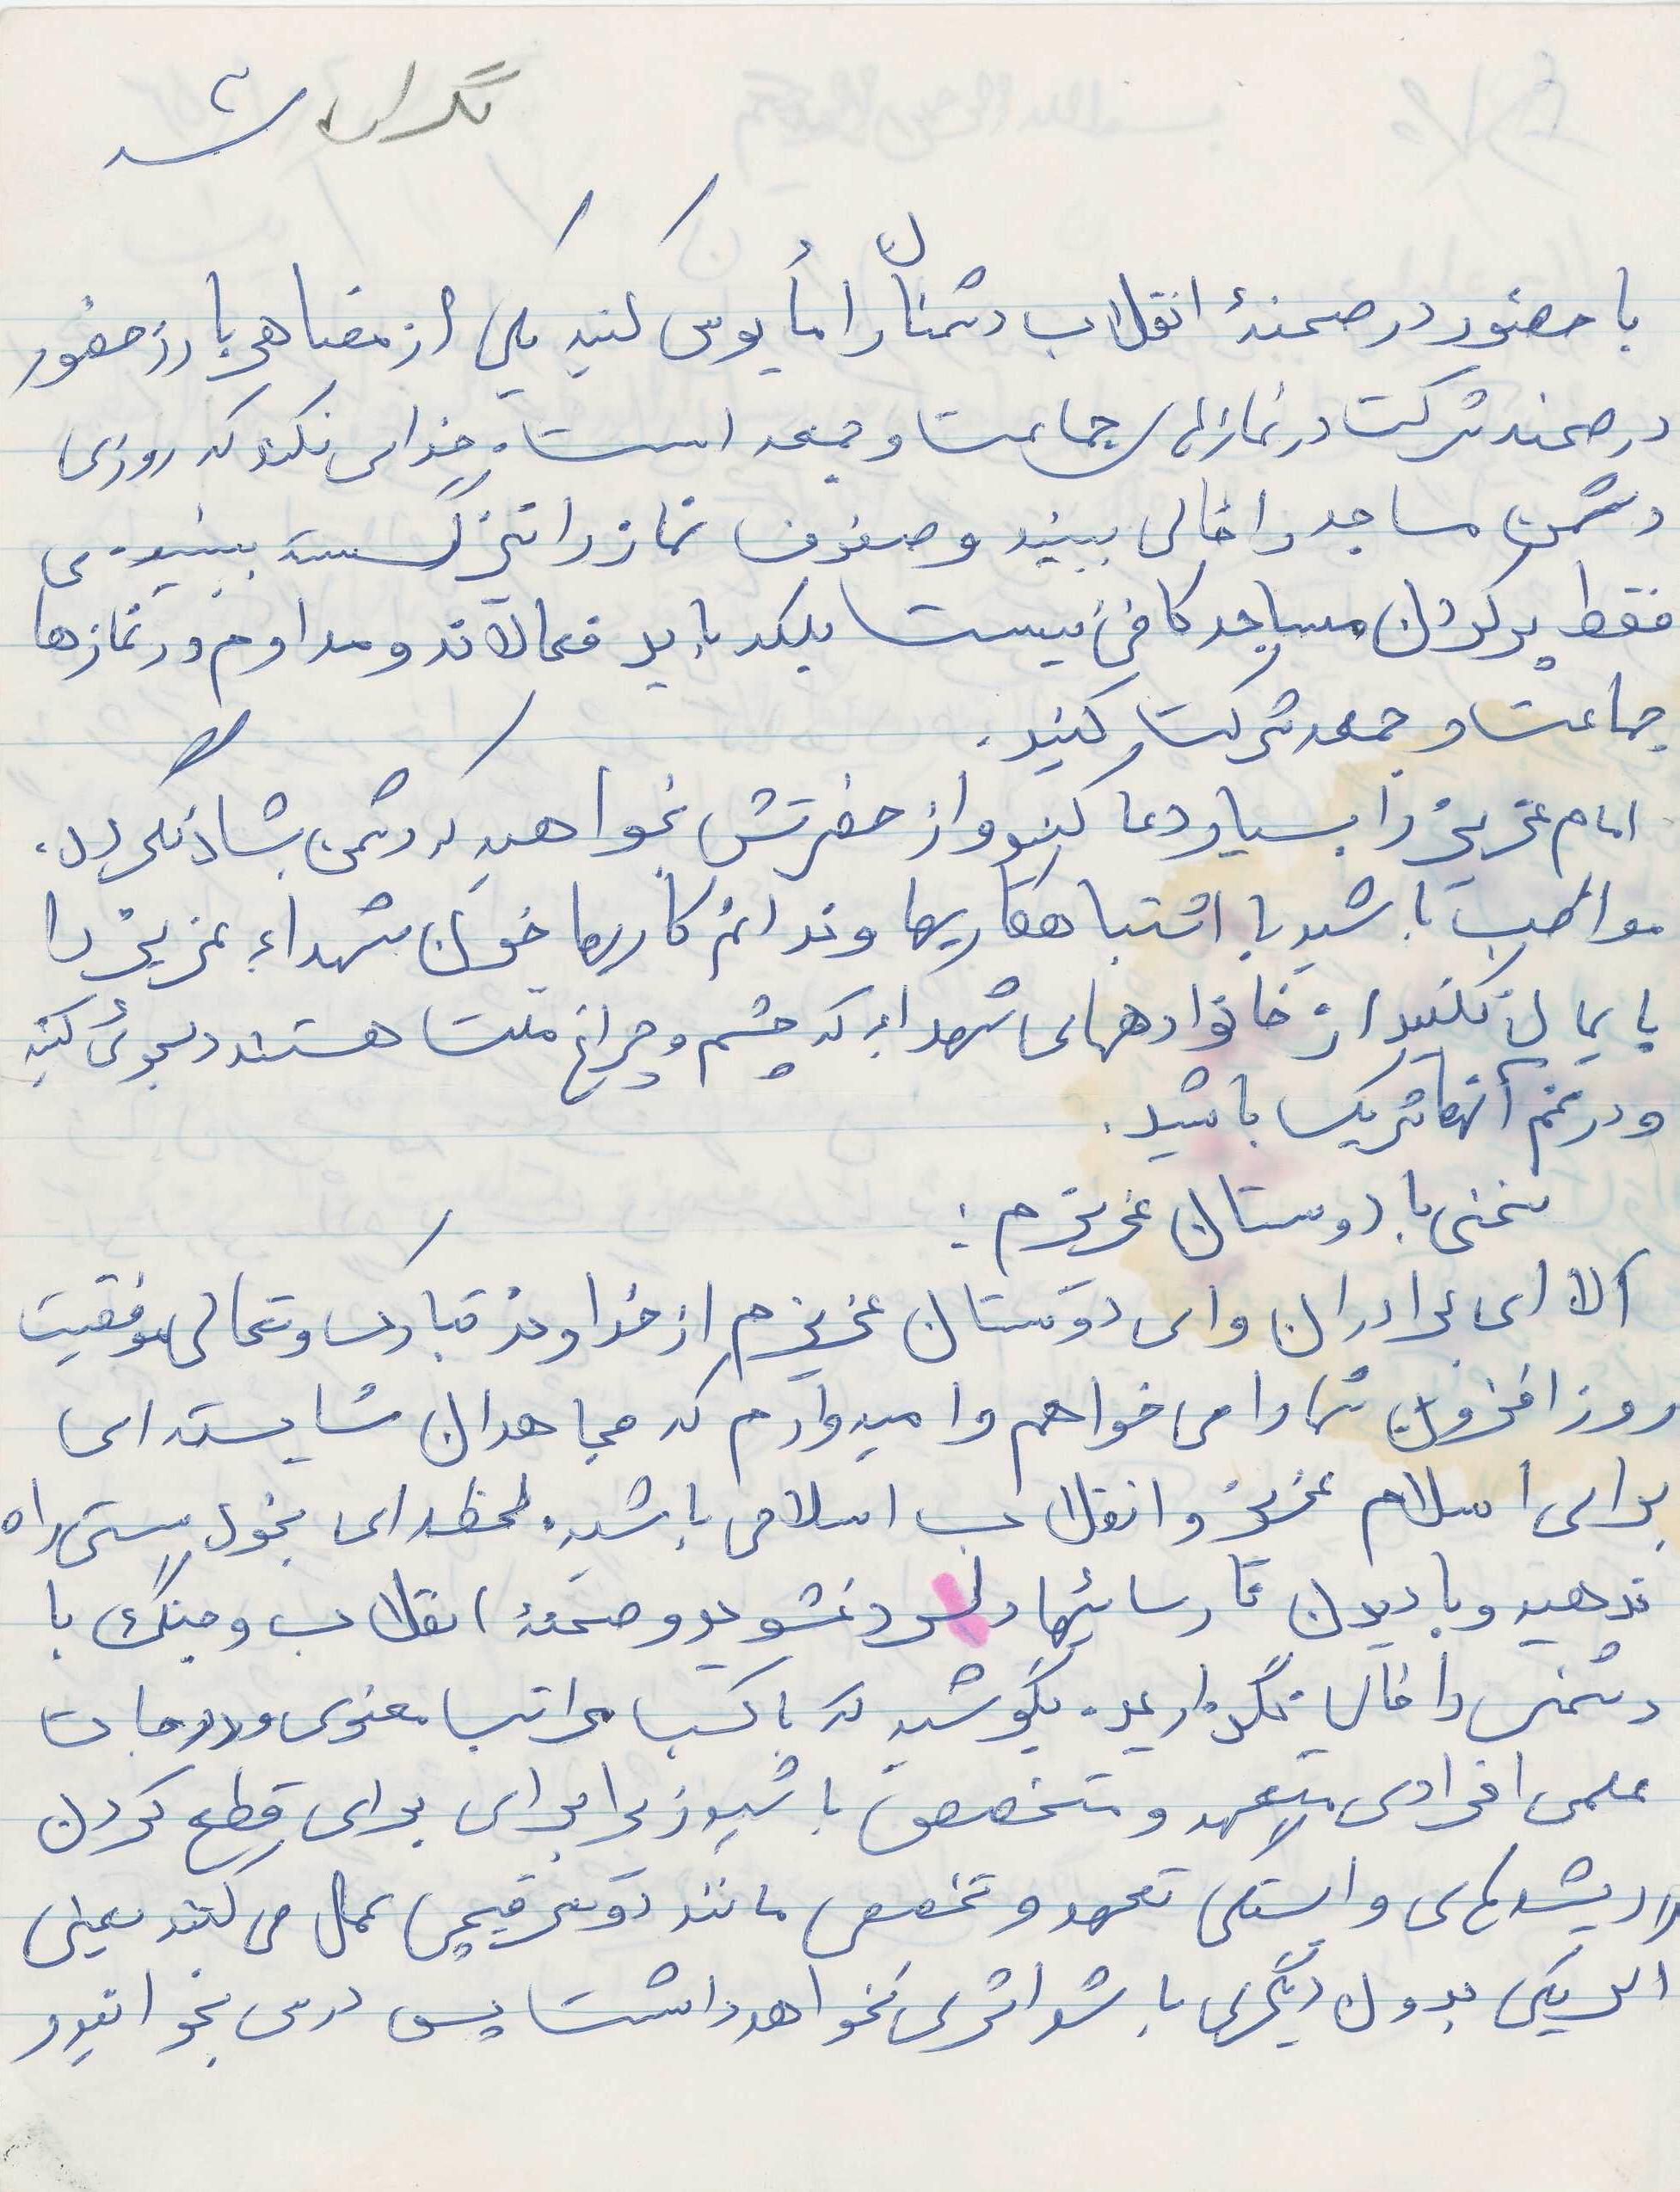 با حضور در صحنهٔ انقلاب دشمنان را مأیوس کنید یکی از مضاهر بارز حضور
در صحنه شرکت در نمازهای جماعت و جمعه است. خدای نکند که روزی
دشمن مساجد را خالی ببیند و صفوف نماز را نیز گسسته ببیند.
فقط پر کردن مساجد کافی نیست بلکه باید فعالانه و مداوم در نمازها
جماعت و جمعه شرکت کنید.
امام عزیز را بسیار دعا کنید و از حضرتش بخواهید که دشمن بشاد نگردد.
مواظب باشید با اشتباهکاریها و ندانم کاریها خون شهداء عزیز را
پایمال نکنید از خانوادههای شهداء که چشم و چراغ ملت هستند دلجوئی کنید
و در غم آنها شریک باشید.
سخنی با دوستان عزیزم :
الا ای برادران و ای دوستان عزیزم از خداوند تبارک و تعالی موفقیت
روز افزون شما را می خواهم و امیدوارم که مجاهدان شایسته ای
برای اسلام عزیز و انقلاب اسلامی باشید. لحظه ای بخود سستی راه
ندهید و با دیدن نارسائیها دلسرد نشوید و صحنهٔ انقلاب و جنگ با
دشمن را خالی نگذارید. بکوشید که با کسب مراتب معنوی و درجات
علمی افرادی متعهد و متخصص باشید زیرا برای برای قطع کردن
ریشه های وابستگی تعهد و تخصص مانند دو سر قیچی عمل می کنند یعنی
اگر یکی بدون دیگری باشد اثری نخواهد داشت پس درس بخوانید و